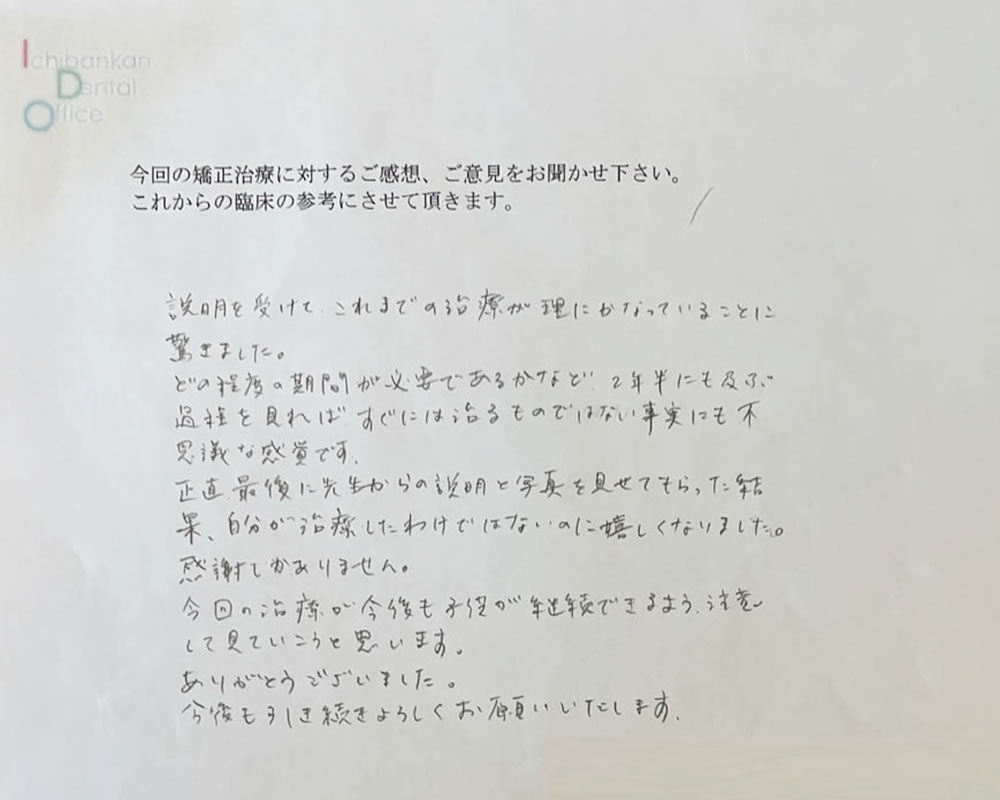 Ichibankan
Dental
Office
今回の矯正治療に対するご感想、ご意見をお聞かせ下さい。
これからの臨床の参考にさせて頂きます。
説明を受けて、これまでの治療が理にかなっていることに
驚きました。
どの程度の期間が必要であるかなど、2年半にも及ぶ
過程を見れば、すぐには治るものではない事実にも不
思議な感覚です。
正直、最後に先生からの説明と写真を見せてもらった結
果、自分が治療したわけではないのに嬉しくなりました。
感謝しかありません。
今回の治療が今後も子供が継続できるよう、注意
して見ていこうと思います。
ありがとうございました。
今後も引き続きよろしくお願いいたします。